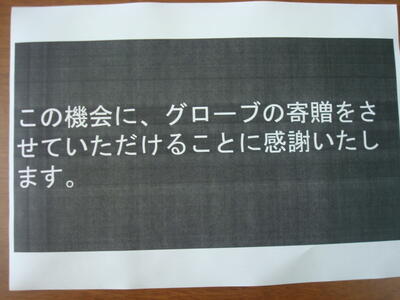 この機会に、グローブの寄贈をさ
せていただけることに感謝いたし
ます。